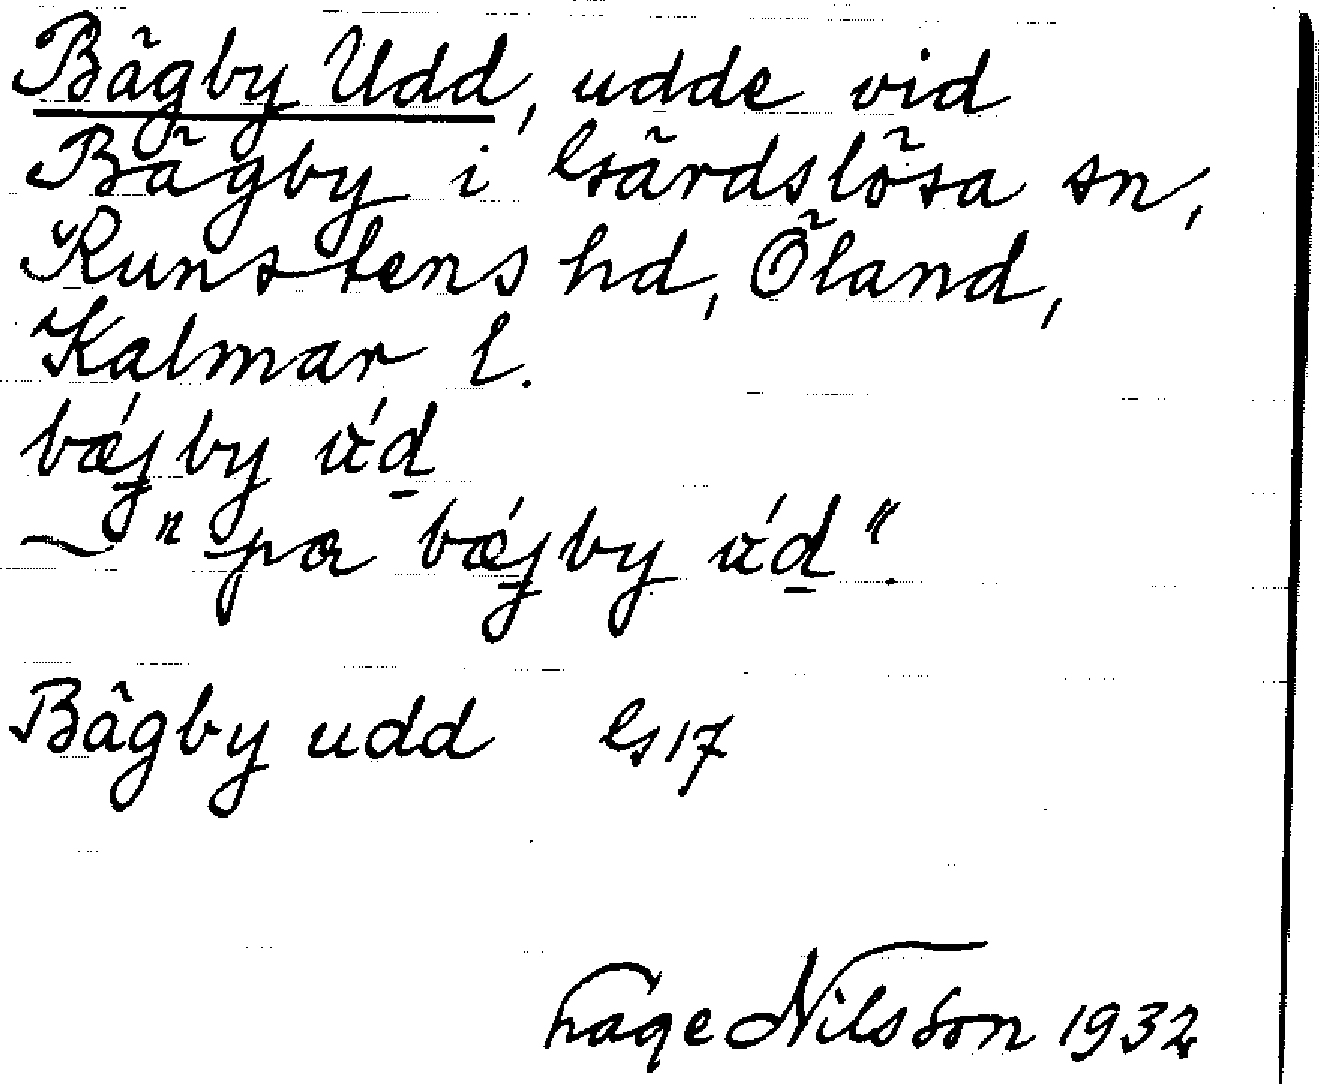 Bägby Udd, udde vid
Bägby i Gärdslösa sn,
Runstens hd, Öland,
Kalmar l.
bǽjby ú̵d
~ "pa bǽjby ú̵d".
Bägby udd G17
Hage Nilsson 1932